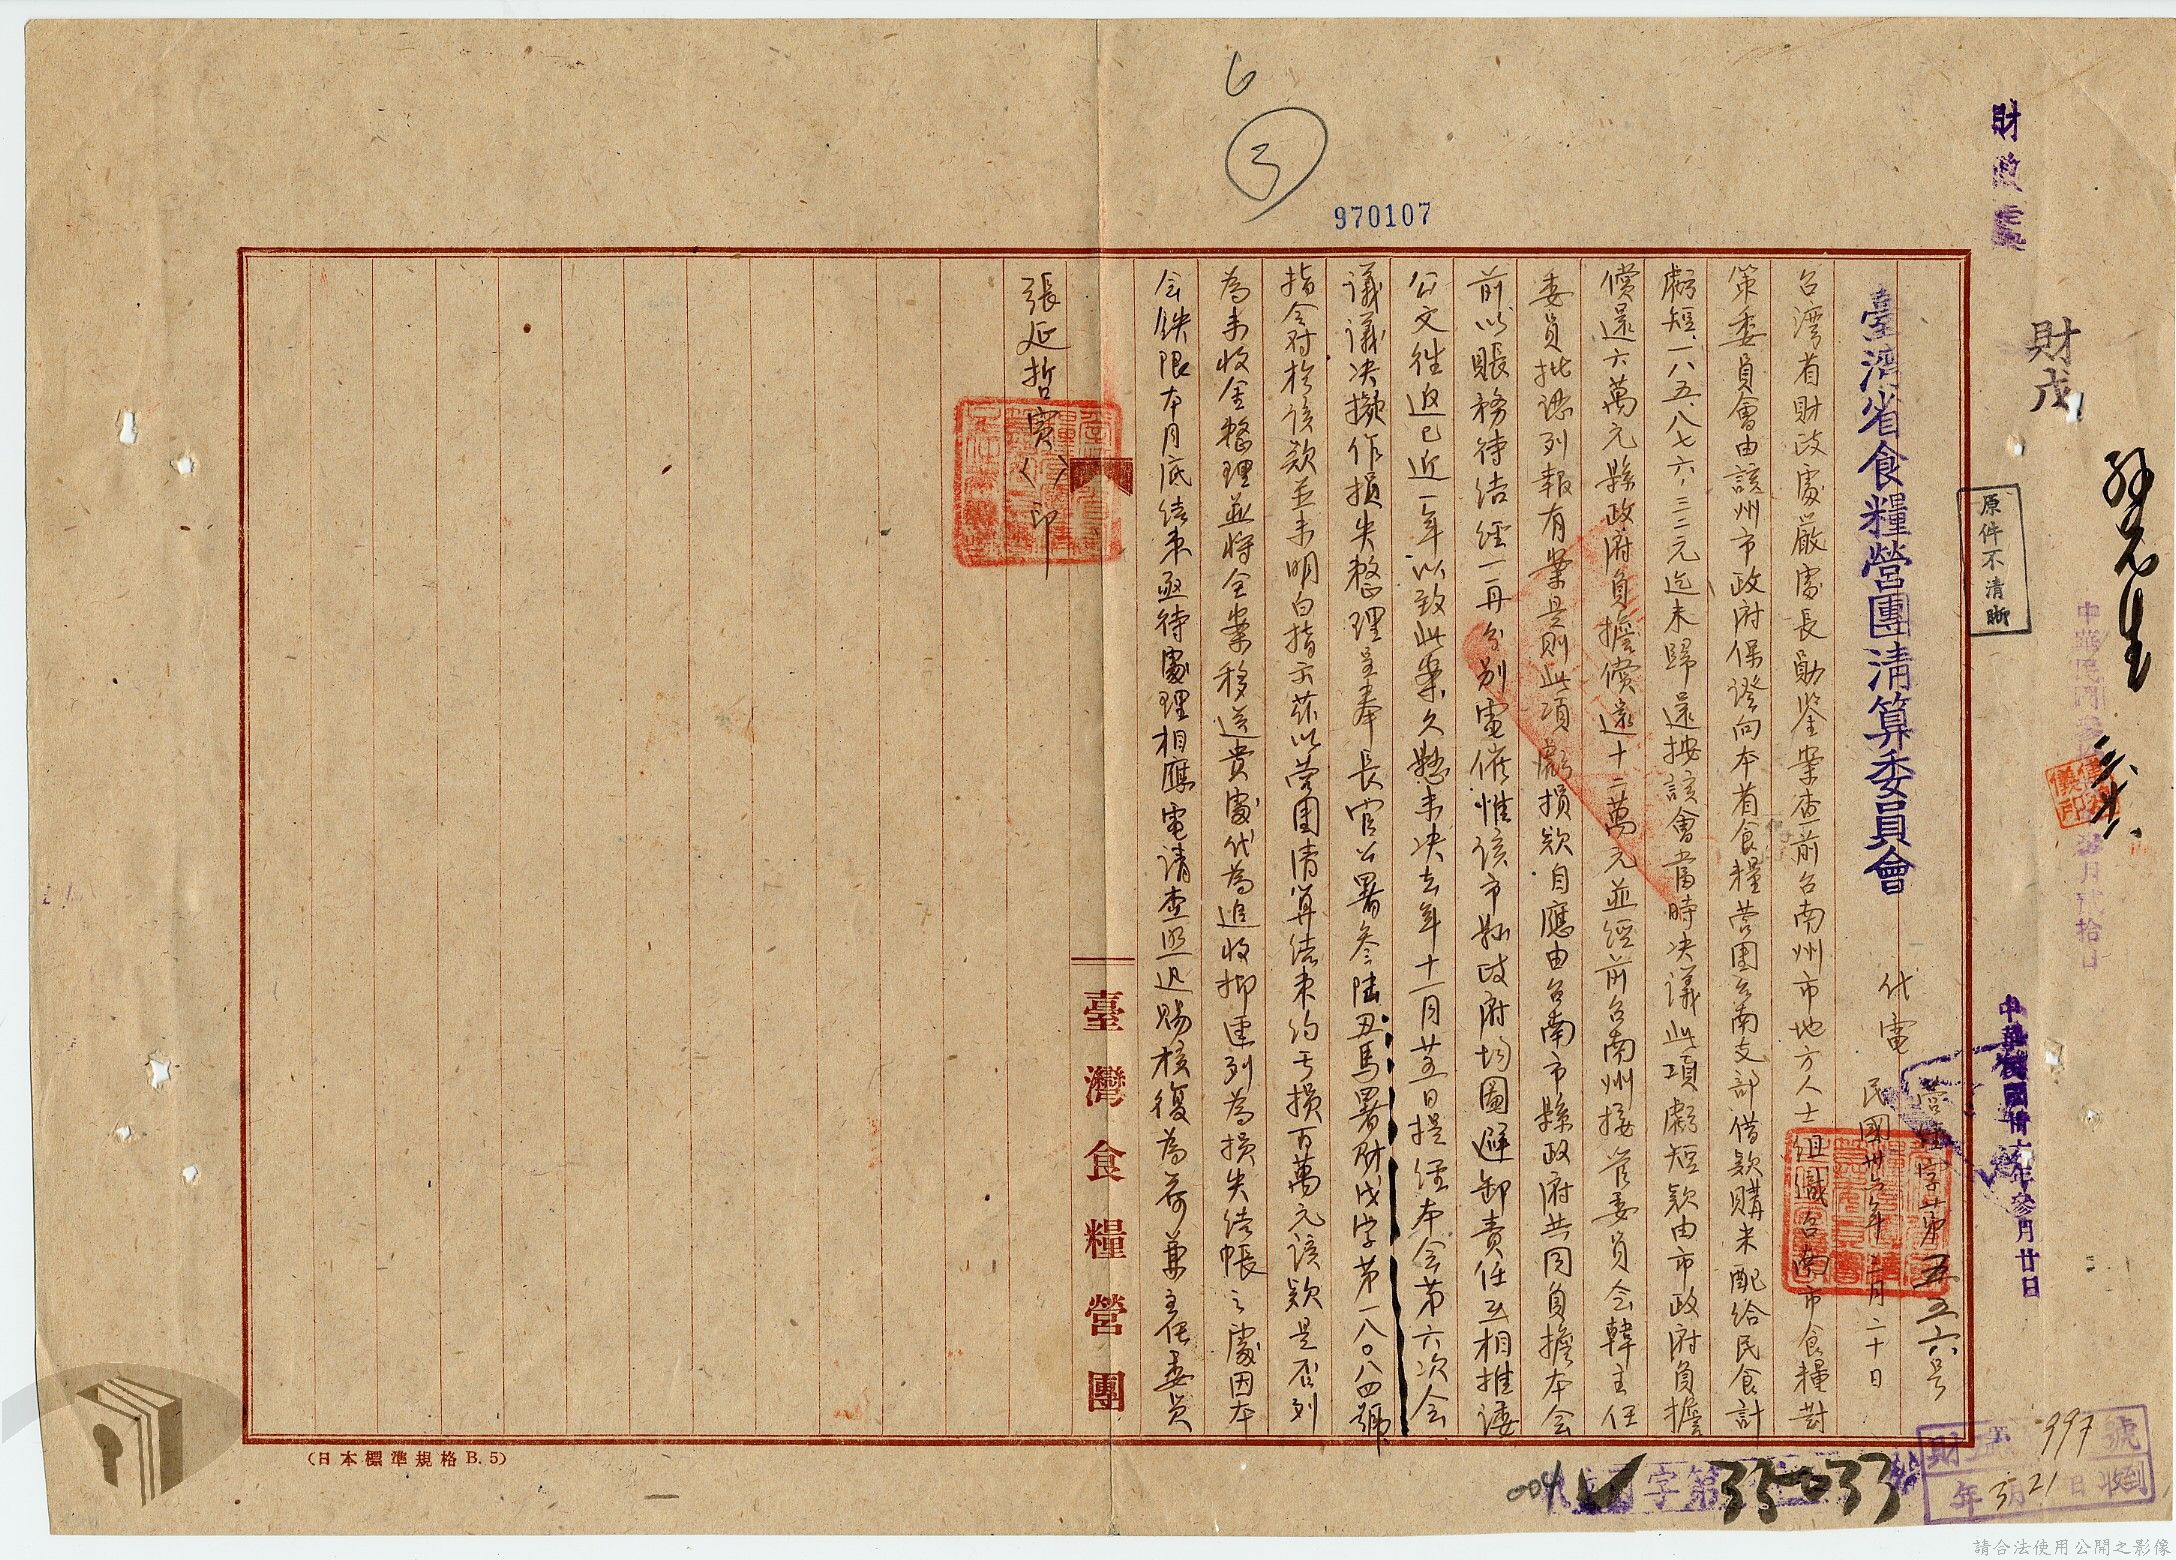 6
3
970107
財政處
財戊
原件不清晰
中華民國卅六年參月廿日
臺灣省食糧營團清算委員會
代電
民國卅六年三月二十日
營清字第五五六号
台灣省財政處嚴處長勛鑒案查前台南州市地方人士組織台南市食糧對
策委員會由該州市政府保證向本省食糧营團台南支部借款購米配給民食計
虧短一八五、八七六、三二元迄未歸還按該會當時决議此項虧短款由市政府負擔
償還六萬元縣政府負擔償還十二萬元並經前台南州接管委員会韓主任
委員批認列報有案是則此項虧損欵自應由台南市縣政府共同負擔本会
前以賬務待结經一再分别電催惟該市縣政府均圖避卸責任互相推諉
公文往返已近一年以致此案久懸未决去年十一月廿五日提經本会第六次会
議議决擬作損失整理呈奉長官公署叁陆丑馬署財戊字第一八〇八四號
指令对於该款並未明白指示茲以营團清算结束约亏損百萬元該欵是否列
為未收金整理並将全案移送貴處代為追收抑逕列為損失结帳之處因本
会鉄限本月底结束亟待處理相應電请查照迅賜核復為荷兼主任委員
張延哲寅〈〉印
臺灣食糧營團
(日本標準規格B.5)
004
33-033
財 997 號
年 3月21日 收到
請合法使用公開之影像